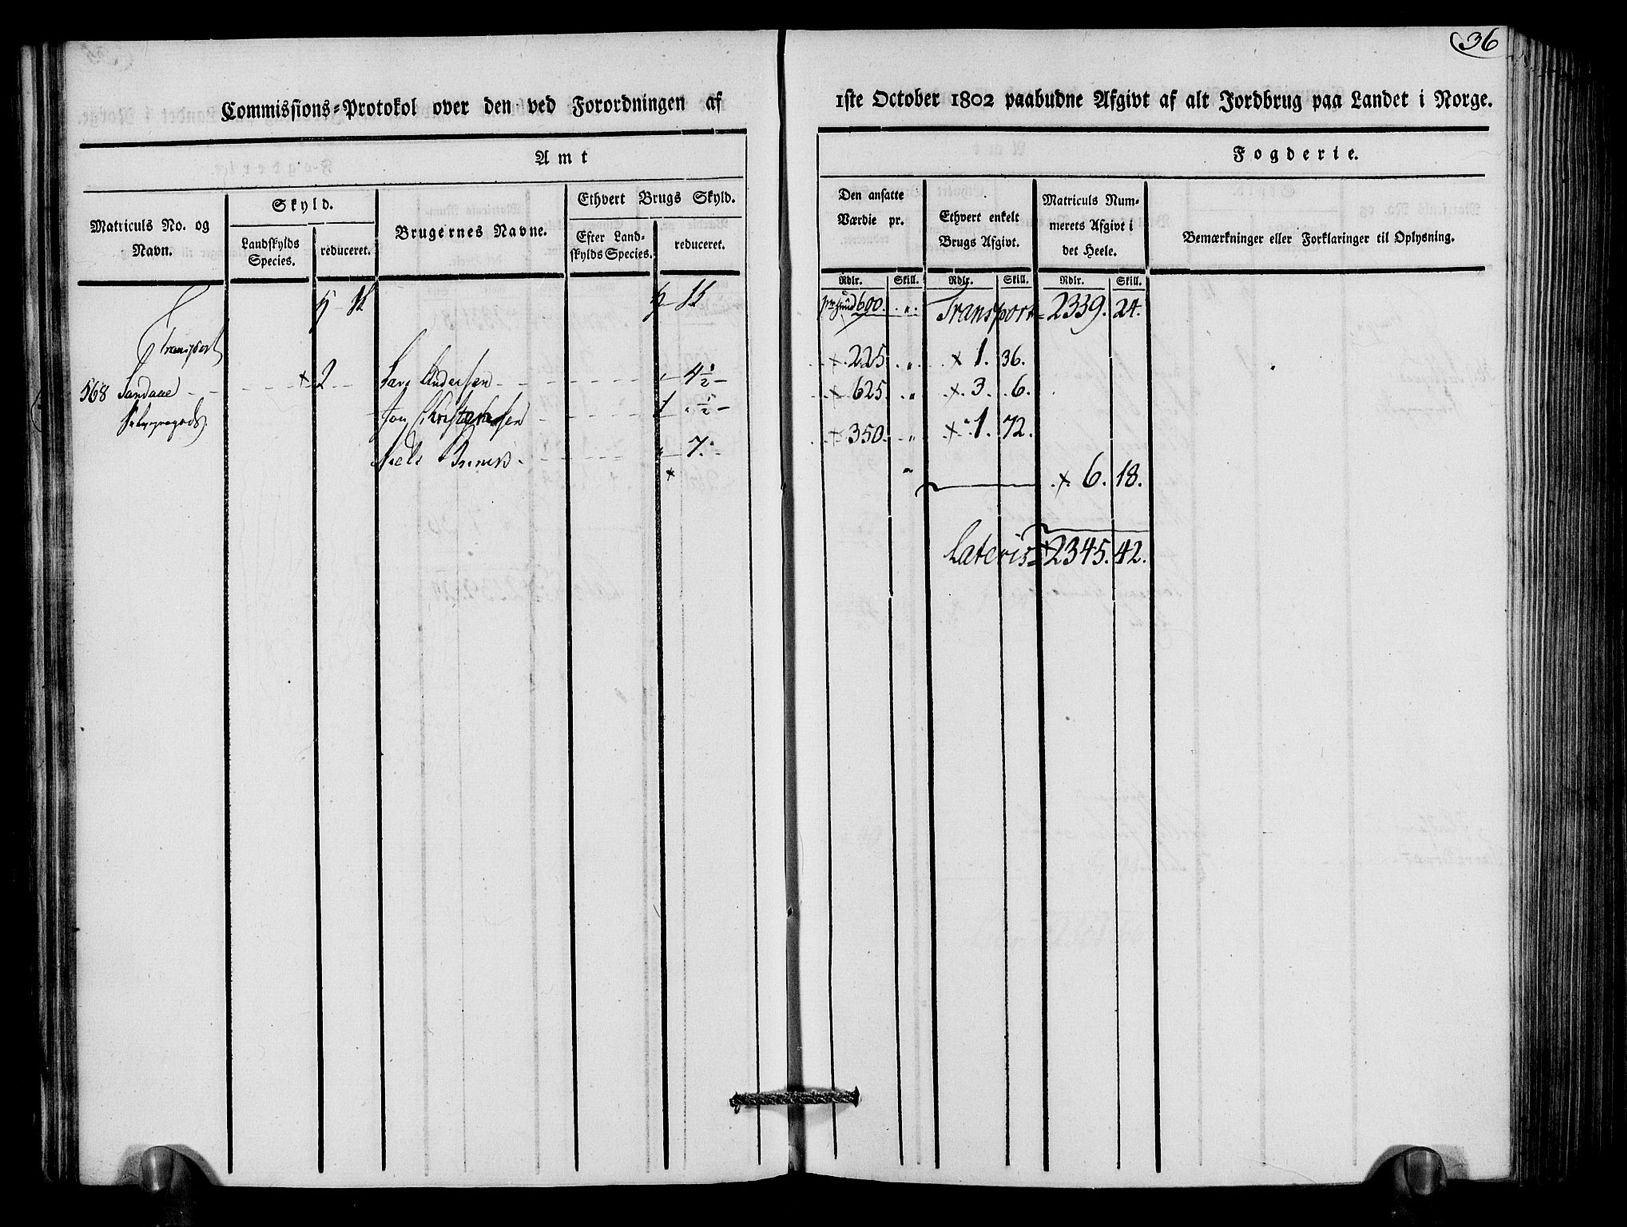 36
Commissions-Protokol over den ved Forordningen af
1ste October 1802 paabudne Afgivt af alt Jordbrug paa Landet i Norge.
Amt
Fogderie.
Matriculs No. og Navn.
Skyld.
Landskylds Species.
reduceret.
Brugernes Navne.
Ethvert Brugs Skyld.
Efter Landskylds Species.
reduceret.
Den ansatte Værdie pr.
Ethvert enkelt Brugs Afgivt.
Matriculs Nummerets Afgivt i det Heele.
Bemærkninger eller Forklaringer til Oplysning.
Rdlr. Skill. Rdlr. Skill. Rdlr. Skill.
Transport
600. „ Transport 2339. 24.
568 Sandaae 2 Lars Andersen „ 4½
225 „ 1. 36.
Jon Christensen 1 „ ½
625 „ 3. 6.
Niels „ 7.
350 „ 1. 72.
6. 18.
Lateris 2345. 42.